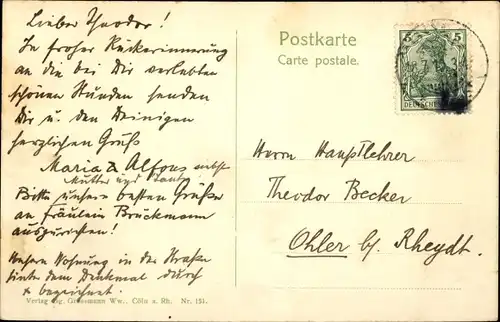 Lieber Theodor!
In froher Rückerinnerung
an die bei Dir verlebten
schönen Stunden senden
Dir u. den Deinigen
herzlichen Gruß
Maria & Alfons nebst
Mutter und Tante
Bitte unsere besten Grüße
an Fräulein Brückmann
auszurichten!
Unsere Wohnung in der Straße
hinter dem Denkmal durch
x bezeichnet.
Verlag Hg. Grossmann Ww., Cöln a. Rh. Nr. 151.
Postkarte
Carte postale.
5 5
DEUTSCHES
Herrn Hauptlehrer
Theodor Becker
Ohler b/ Rheydt.